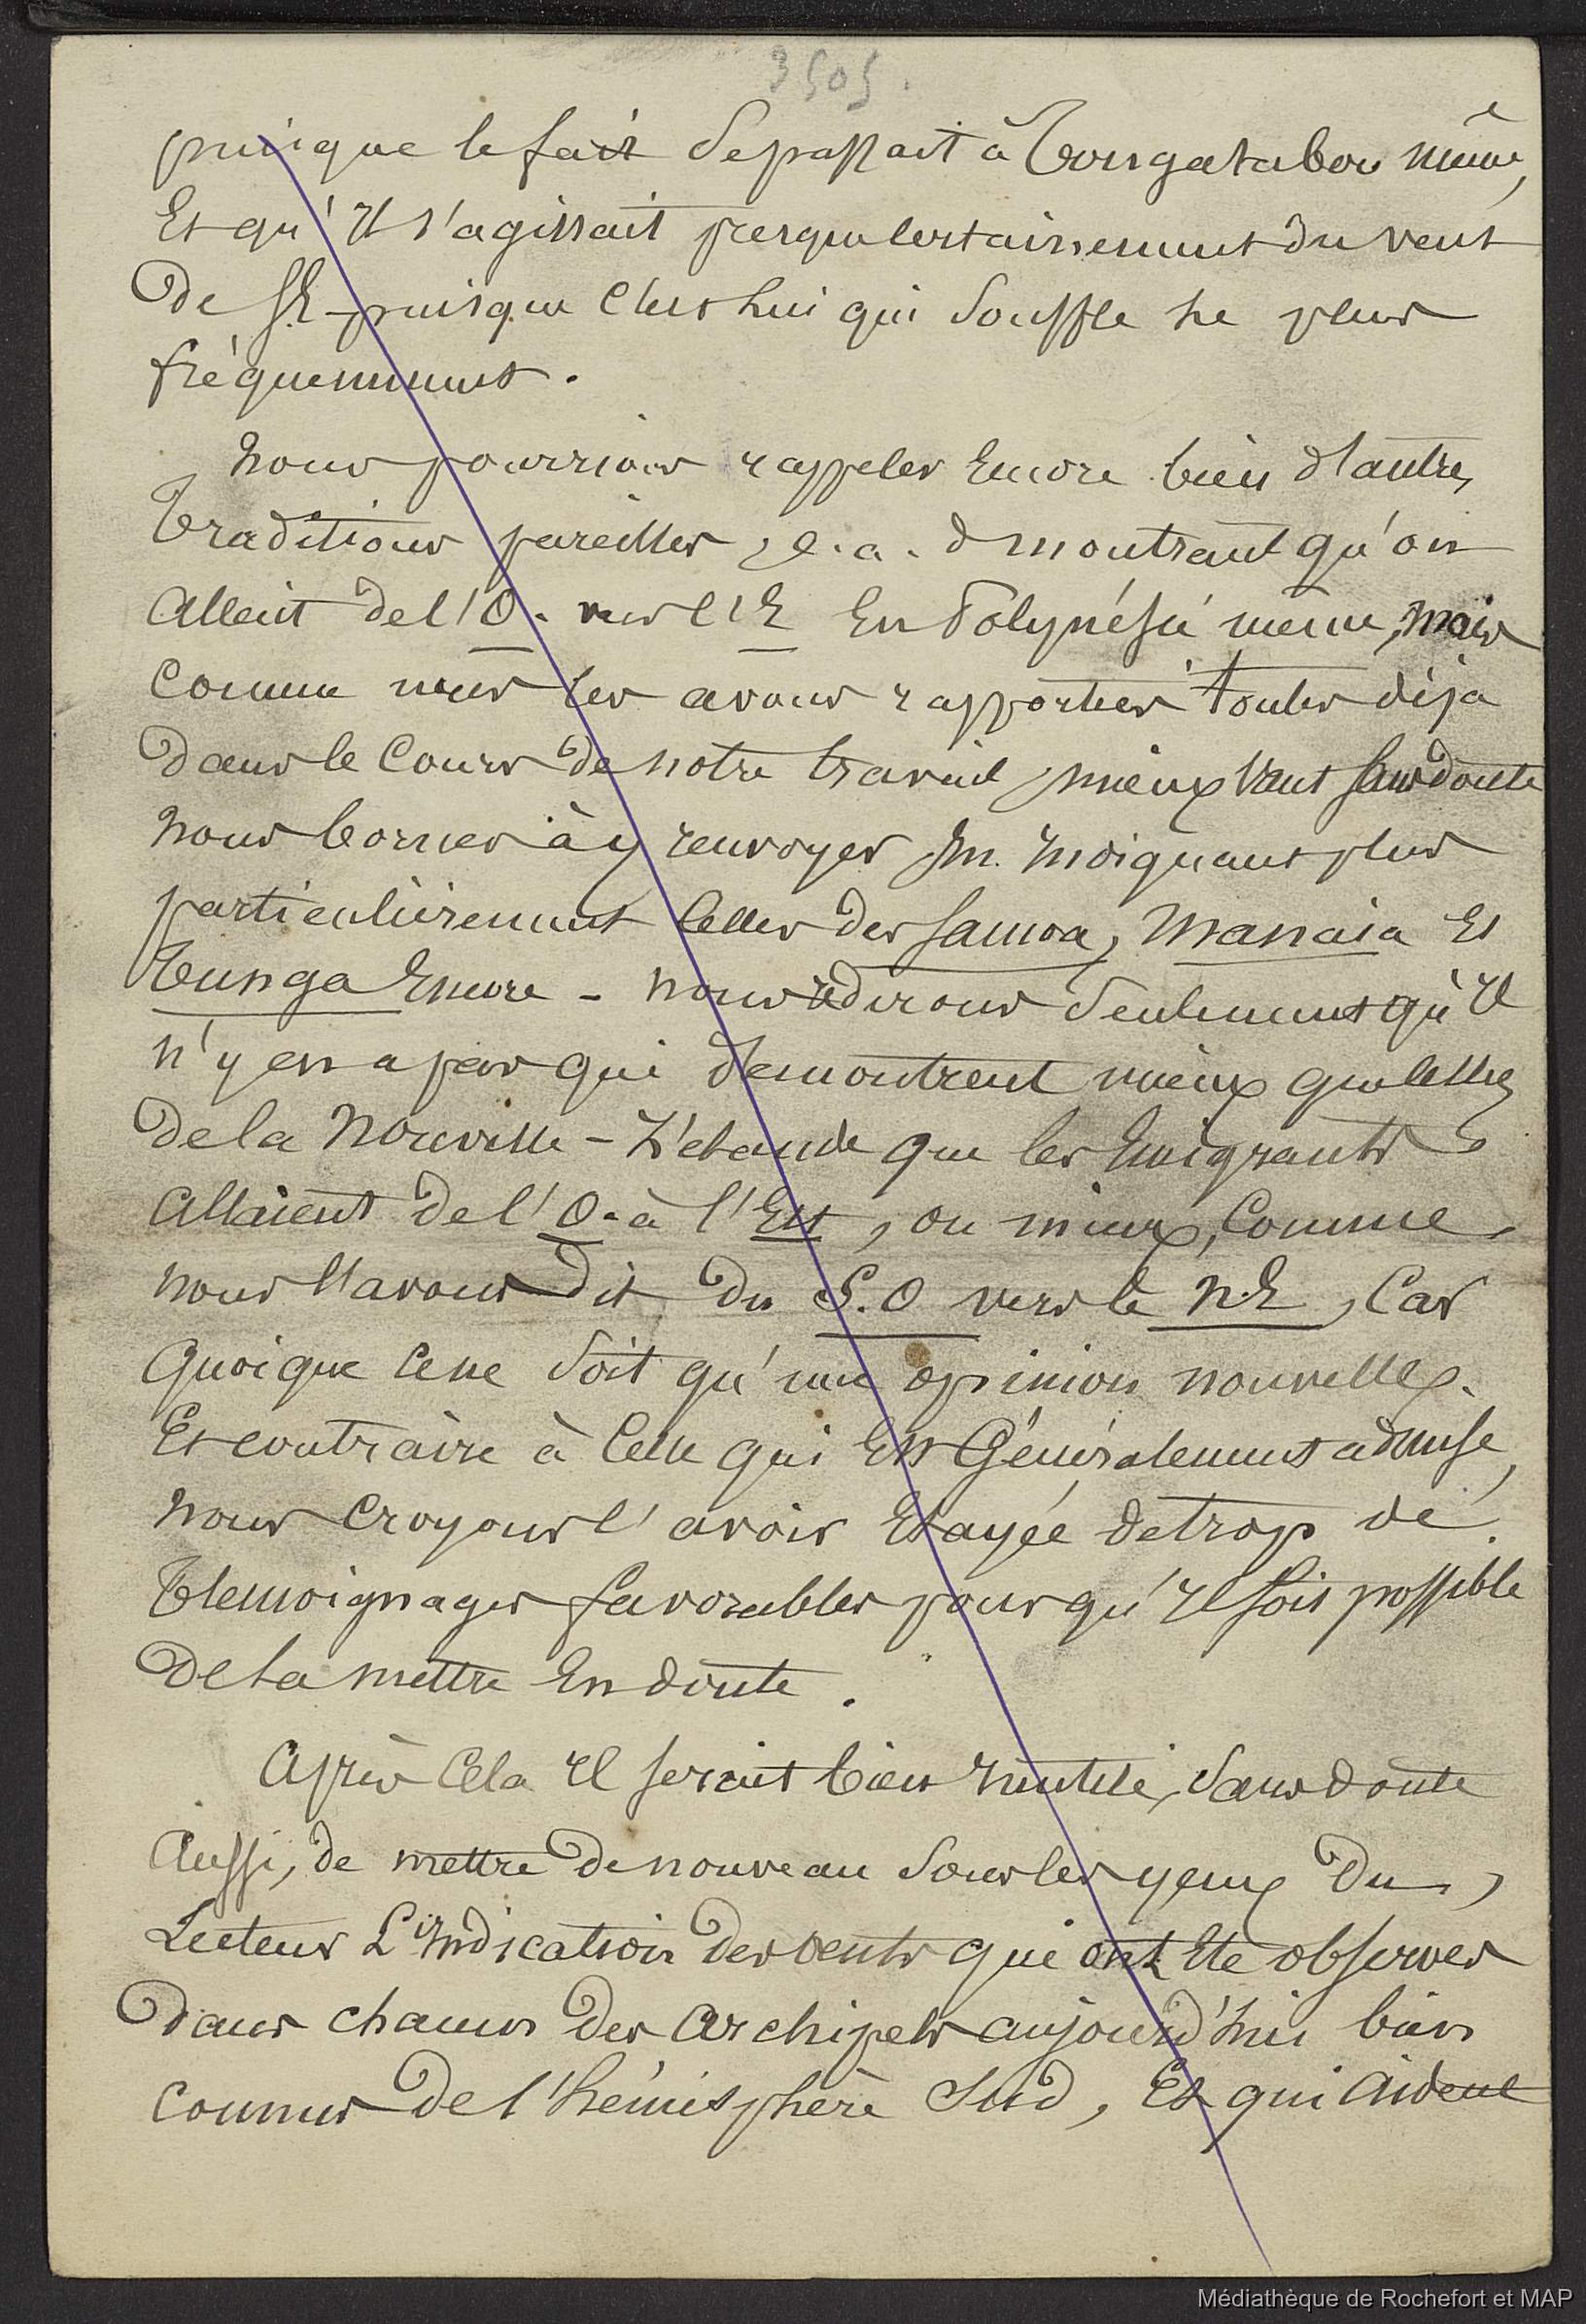 3505.
puisque le fait se passait à Tongatabou même,
Et qu'Il s'agissait presque certainement du vent
de S.E. puisque c'est lui qui souffle le plus
fréquemment.
Nous pourrions rappeler Encore bien d'autres
Traditions pareilles, c.a.d montrant qu'on
Allait de l'O. vers l'E En Polynésie même, mais
Comme nous les avons rapportées toutes déja
dans le Cours de notre travail, mieux Vaut sans doute
Nous borner à y renvoyer, En témoignant plus
particulièrement Celles des Samoa, Manaia Et
Tunga Encore - Nous redirons seulement qu'Il
n'y en a pas qui démontrent mieux que celles
de la Nouvelle-Zélande que les Emigrants
Allaient de l'O. à l'Est, ou mieux, Comme
nous l'avons dit du S.O vers le N.E, Car
Quoique Ce ne soit qu'une opinion nouvelle
Et contraire à Celle qui Est Généralement admise,
Nous Croyons l'avoir Etayée de trop de
Témoignages favorables pour qu'Il soit possible
De la mettre En doute.
Après Cela Il serait bien Inutile, sans doute
Aussi, de mettre de nouveau sous les yeux du
Lecteur L'Indication des vents qui ont Eté observés
Dans chacun des Archipels aujourd'hui bien
connus de l'hémisphère Sud, Et qui Aident
Médiathèque de Rochefort et MAP